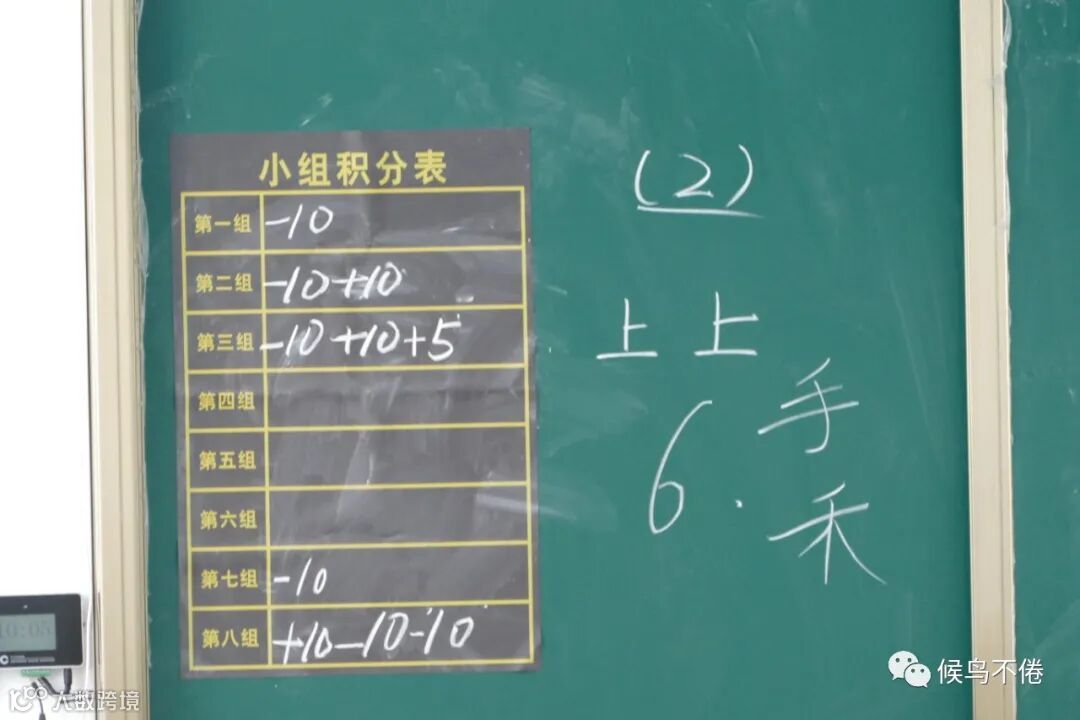 小组积分表
第一组 -10
第二组 -10+10
第三组 -10+10+5
第四组
第五组
第六组
第七组 -10
第八组 +10-10-10
(2)
上上
手
6.
禾
10:05
大数跨境
候鸟不倦